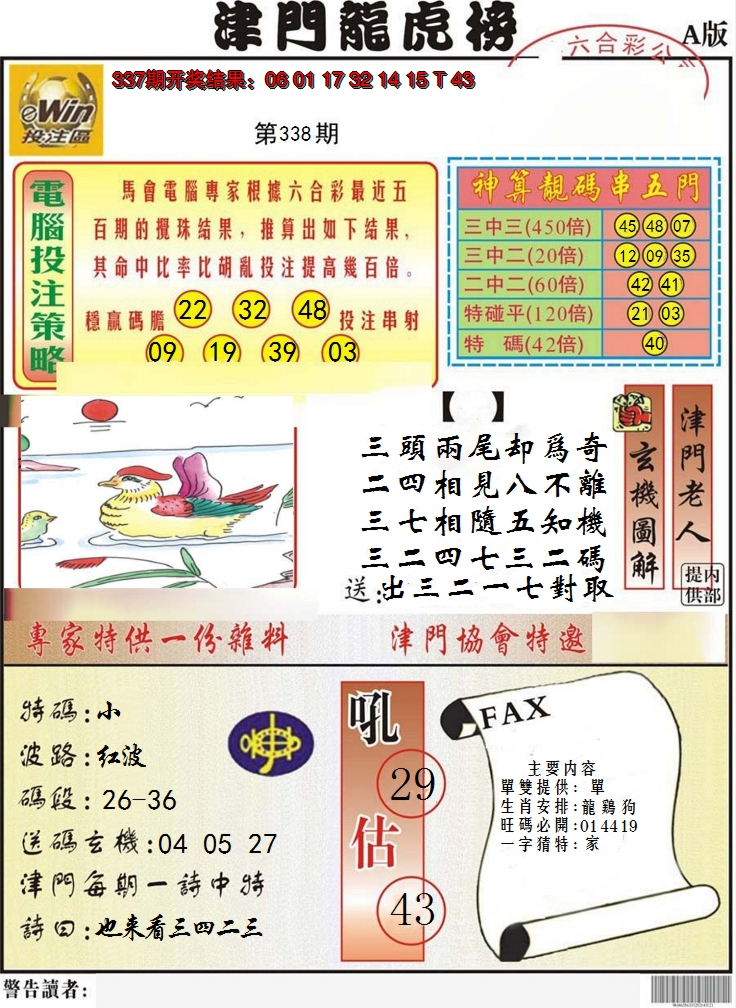 津門龍虎榜
A版
六合彩公
eWin
投注區
337期开奖结果：06 01 17 32 14 15 T 43
第338期
電腦投注策略
馬會電腦專家根據六合彩最近五
百期的攪珠结果，推算出如下结果，
其命中比率比胡亂投注提高幾百倍。
穩赢碼膽 22 32 48 投注串射
09 19 39 03
神算靚碼串五門
三中三(450倍) 45 48 07
三中二(20倍) 12 09 35
二中二(60倍) 42 41
特碰平(120倍) 21 03
特 碼(42倍) 40
【 】
三頭兩尾却爲奇
二四相見八不離
三七相隨五知機
三二四七三二碼
送:出三二一七對取
玄機圖解
津門老人
内部提供
專家特供一份雜料
津門協會特邀
特碼:小
波路:红波
碼段:26-36
送碼玄機:04 05 27
津門每期一詩中特
詩曰:也来看三四二三
吼
29
估
43
FAX
主要内容
單雙提供:單
生肖安排:龍鷄狗
旺碼必開:014419
一字猜特:家
警告讀者: